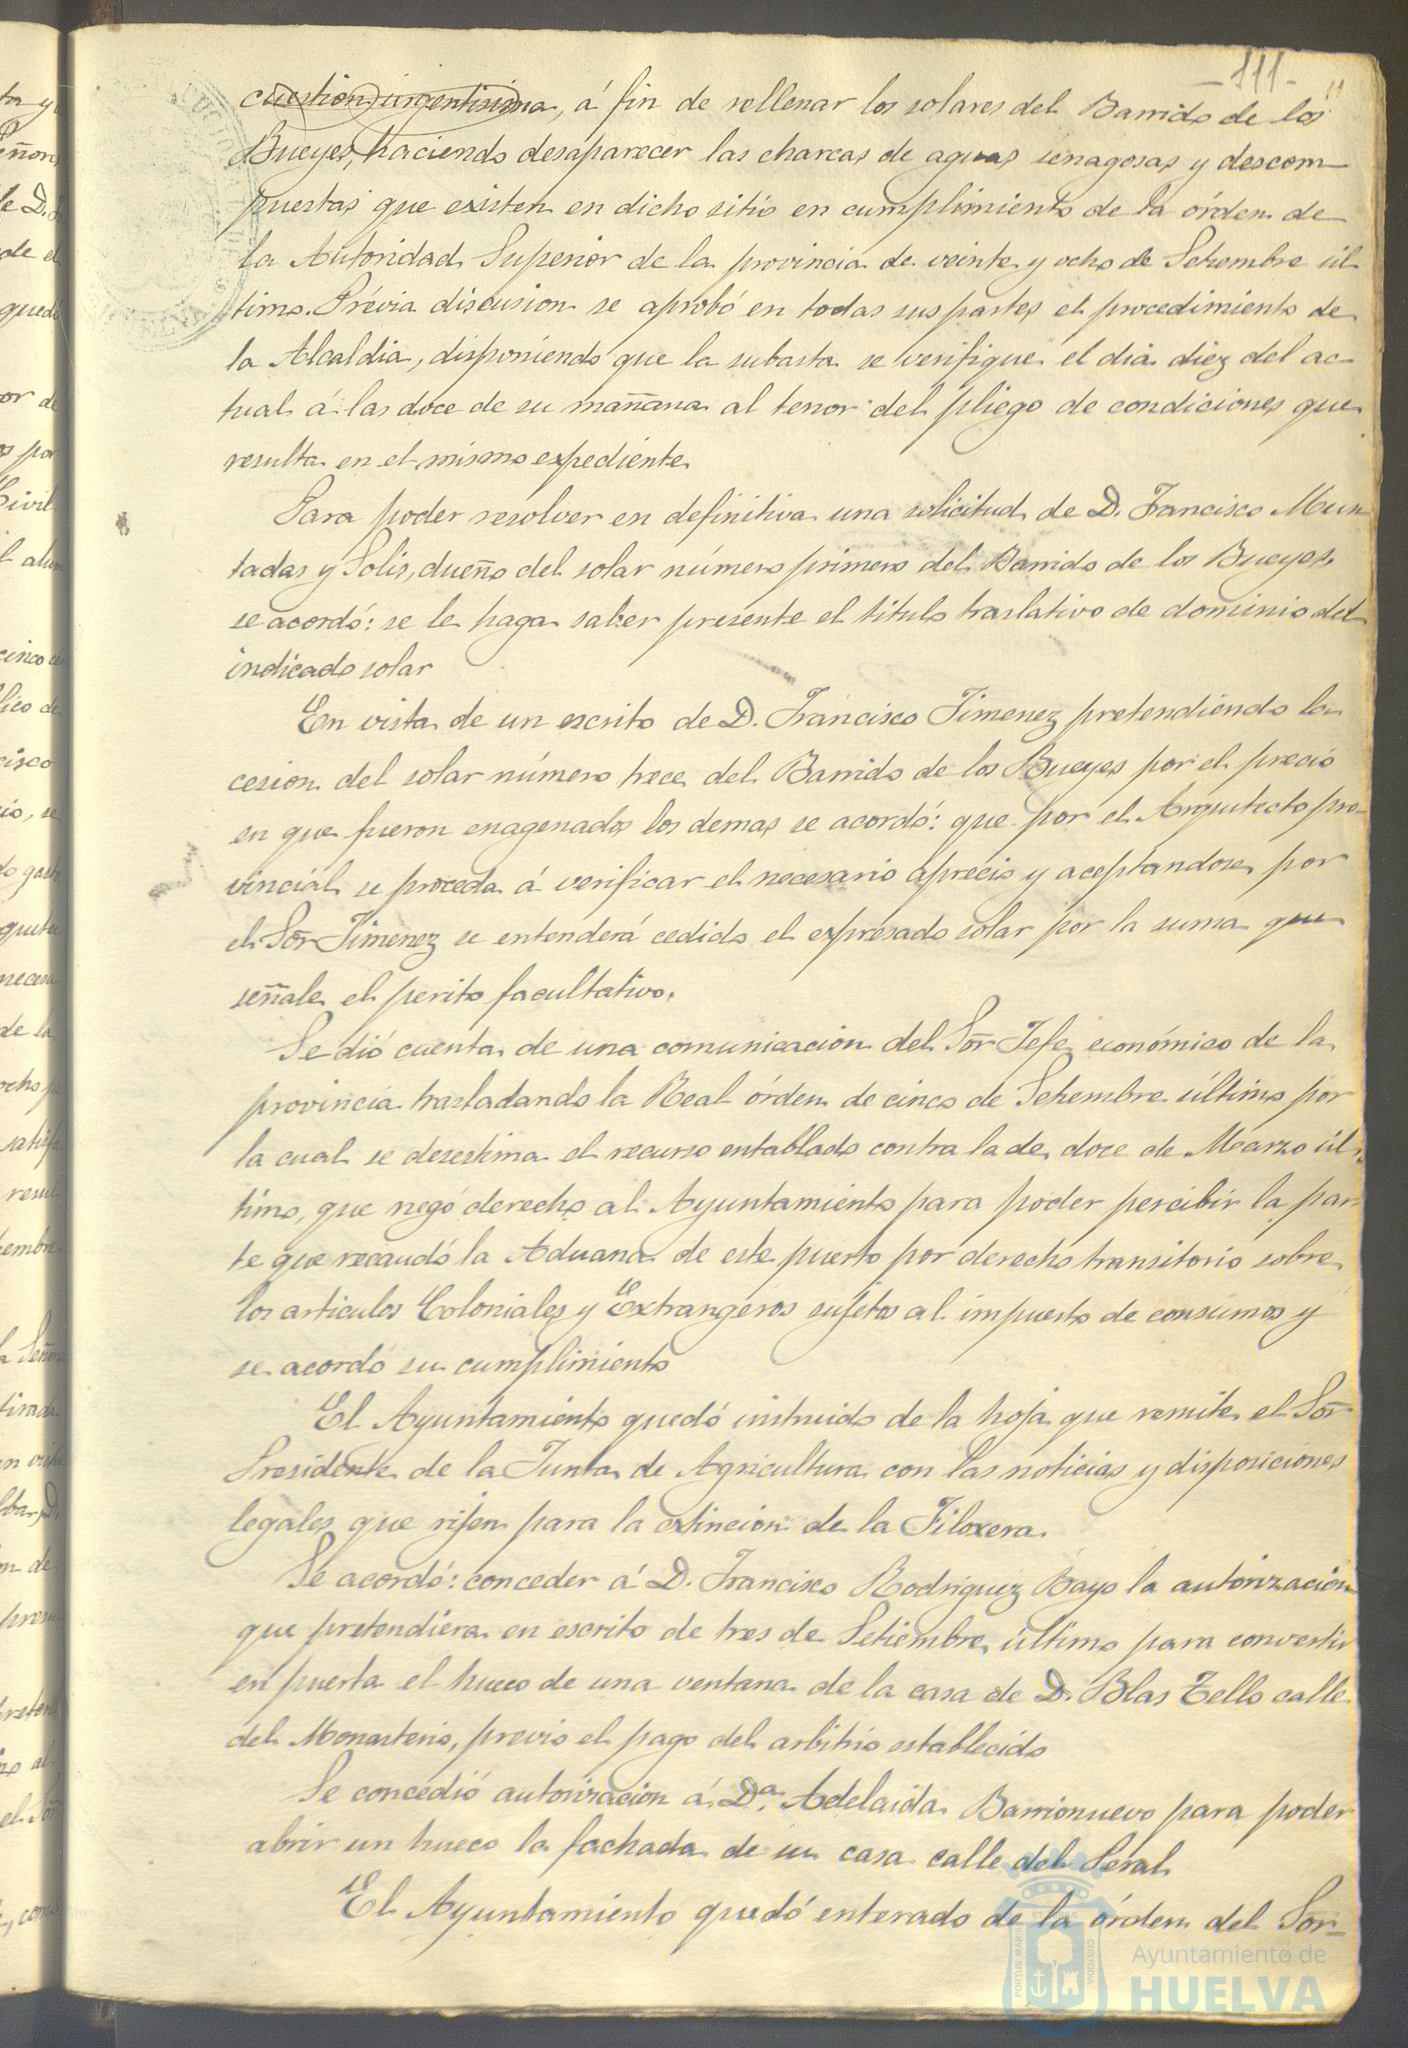 -111-
cuestion urgentisima, á fin de rellenar los solares del Barrido de los
Bueyes, haciendo desaparecer las charcas de aguas senagosas y descom-
puestas que existen en dicho sitio en cumplimiento de la órden de
la Autoridad Superior de la provincia de veinte y ocho de Setiembre úl
timo. Prévia discusion se aprobó en todas sus partes el procedimiento de
la Alcaldia, disponiendo que la subasta se verifique el dia diez del ac-
tual á las doce de su mañana al tenor del pliego de condiciones que
resulta en el mismo expediente
Para poder resolver en definitiva una solicitud de D. Francisco Mun
tadas y Solis, dueño del solar número primero del Barrido de los Bueyes,
se acordó: se le haga saber presente el titulo traslativo de dominio del
indicado solar
En vista de un escrito de D. Francisco Jimenez pretendiendo la
cesion del solar número trece del Barrido de los Bueyes por el precio
en que fueron enagenados los demas se acordó: que por el Arquitecto pro-
vincial se proceda á verificar el necesario aprecio y aceptandose por
el Sor Jimenez se entenderá cedido el expresado solar por la suma que
señale el perito facultativo.
Se dió cuenta de una comunicacion del Sor Jefe económico de la
provincia trasladando la Real órden de cinco de Setiembre último por
la cual se desestima el recurso entablado contra la de doce de Marzo úl-
timo, que negó derecho al Ayuntamiento para poder percibir la par-
te que recaudó la Aduana de este puerto por derecho transitorio sobre
los articulos Coloniales y Extrangeros sujetos al impuesto de consumos y
se acordó su cumplimiento
El Ayuntamiento quedó instruido de la hoja que remite el Sor
Presidente de la Junta de Agricultura con las noticias y disposiciones
legales que rijen para la extincion de la Filoxera.
Se acordó: conceder á D. Francisco Rodriguez Bayo la autorizacion
que pretendiera en escrito de tres de Setiembre último para convertir
en puerta el hueco de una ventana de la casa de D. Blas Tello calle
del Monasterio, previo el pago del arbitrio establecido
Se concedió autorizacion á Da. Adelaida Barrionuevo para poder
abrir un hueco la fachada de su casa calle del Peral
El Ayuntamiento quedó enterado de la órden del Sor-
Ayuntamiento de
HUELVA